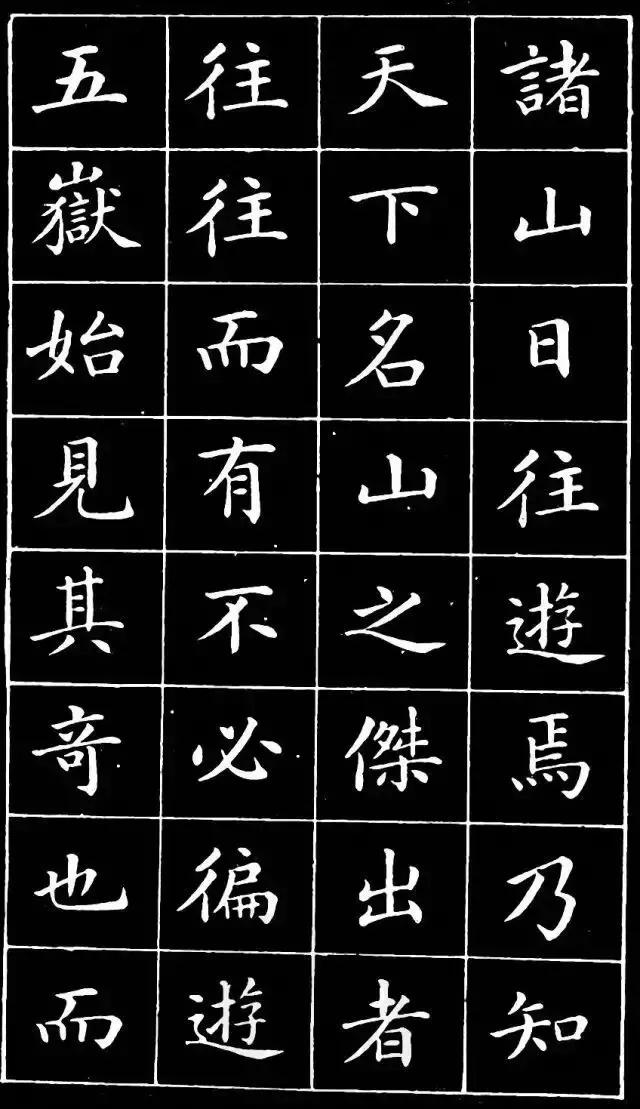 諸山日往遊焉乃知
天下名山之傑出者
往往而有不必徧遊
五嶽始見其奇也而